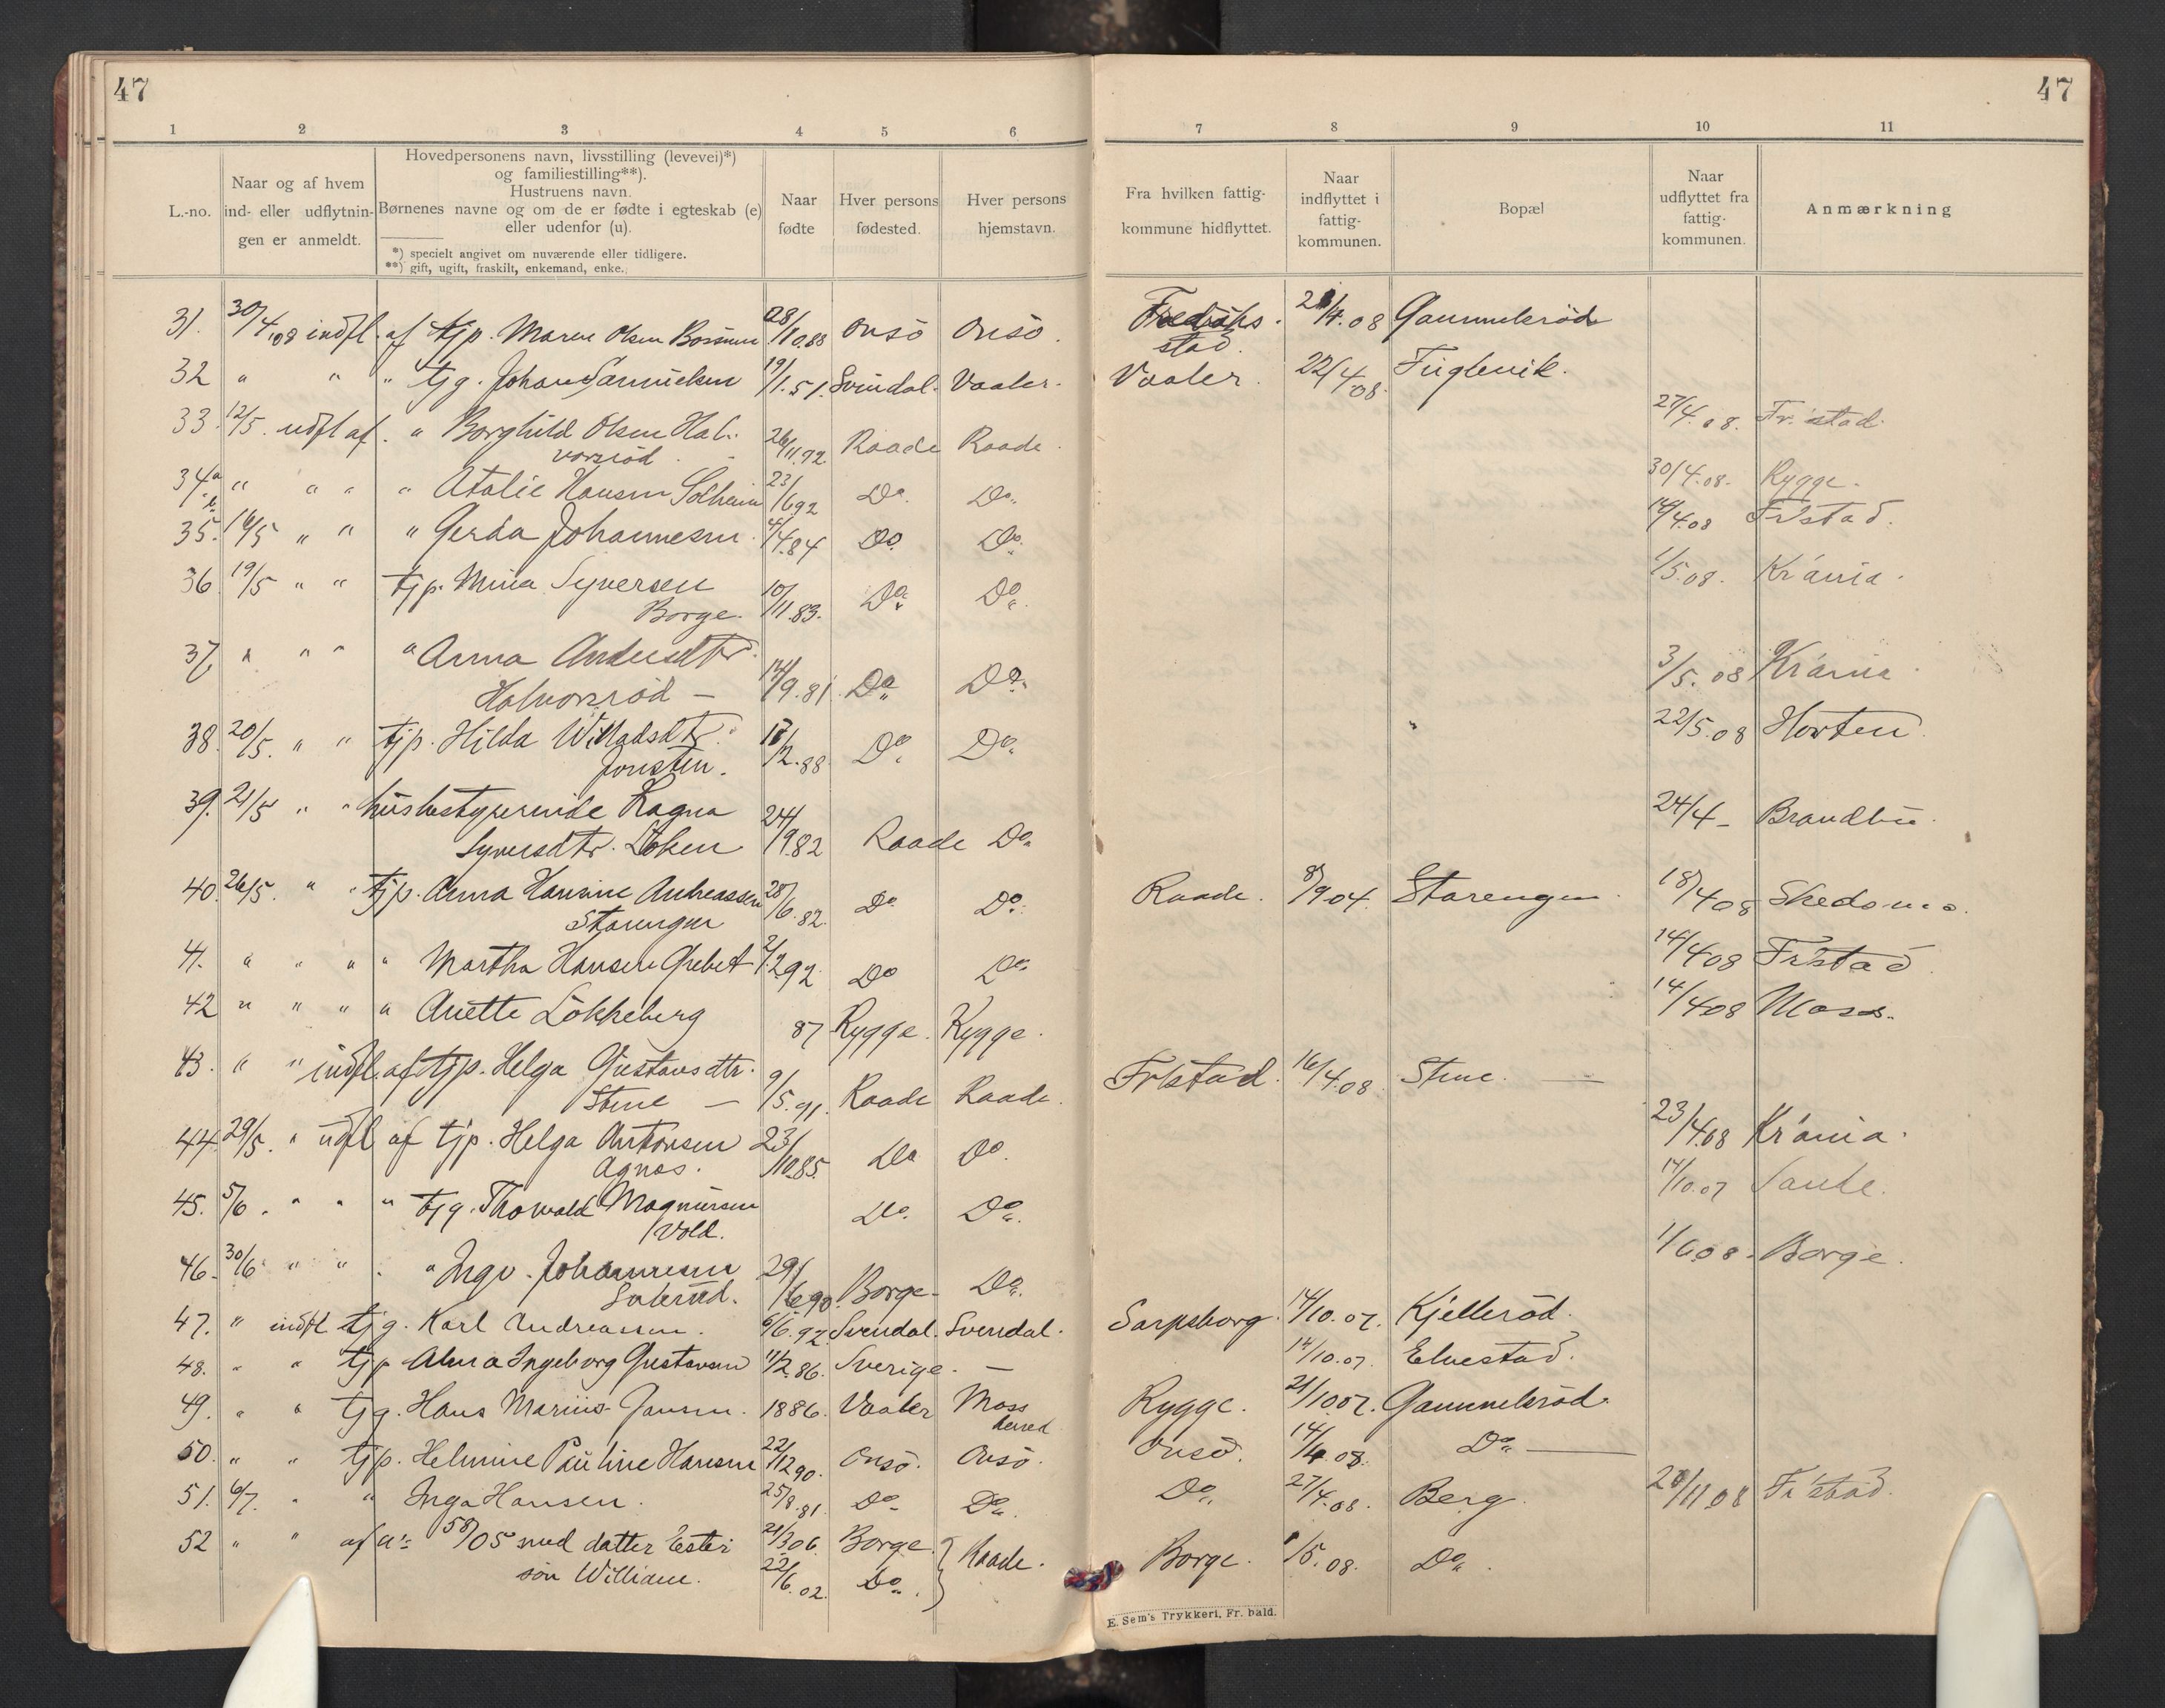 47 47
1 2 3 4 5 6 7 8 9 10 11
L.-no.
Naar og af hvem
ind- eller udflytnin-
gen er anmeldt.
Hovedpersonens navn, livsstilling (levevei)*)
og familiestilling**).
Hustruens navn.
Børnenes navne og om de er fødte i egteskab (e)
eller udenfor (u).
*) specielt angivet om nuværende eller tidligere.
**) gift, ugift, fraskilt, enkemand, enke.
Naar
fødte
Hver persons
fødested.
Hver persons
hjemstavn.
Fra hvilken fattig-
kommune hidflyttet.
Naar
indflyttet i
fattig-
kommunen.
Bopæl
Naar
udflyttet fra
fattig-
kommunen.
Anmærkning
31. 30/4.08 indfl. af tjp. Maren Olsen 28/10.88 Onsö Onsö. Fredriks- 28/4.08 Gammelsröd
stad.
32 " " " tjg. Johan Samuelsen 19/1.51. Svindal. Vaaler. Vaaler. 22/4.08 Fuglevik.
33. 12/5. udfl af. " Borghild Olsen Hal- 26/11.92 Raade Raade. 27/4.08. Fr.stad.
vorsröd
34a " " " " Atalie Hansen Solheim 23/6.92 Do. Do. 30/4.08. Rygge.
35. 16/5 " " " Gerda Johannesen. 4/4.84 Do. Do. 14/4.08 Fr'stad.
36 19/5 " " tjp. Mina Syversen 10/11.83. Do. Do. 1/5.08. Kr'ania.
Borge.
37. " " " " Anna Andersdtr. 14/9.81. Do. Do. 3/5.08 Kr'ania.
Halvorsröd —
38. 20/5. " " tjp. Hilda Willadsdtr. 17/2.88 Do. Do. 22/5.08 Horten.
Jonsten.
39. 21/5 " " husbestyrerinde Ragna 24/9.82 Raade Do. 24/4 - Brandbu.
Syversdtr. Löken
40. 26/5. " " tjp. Anna Hansine Andreassen 28/6.82. Do. Do. Raade. 8/9 04. Starengen. 18/4 08 Skedsmo.
Starengen
41. " " " " Martha Hansen Grebet 2/2.92 Do Do. 14/4 08 Fr'stad
42 " " " " Anette Lökkeberg 87 Rygge. Rygge. 14/4 08 Moss.
43. " " indfl. af tjp. Helga Gustavsdtr. 9/5.91. Raade Raade. Fr'stad. 16/4.08. Stene. —
Stene —
44. 29/5. " udfl af tjp. Helga Antonsen 23/10.85. Do Do. 23/4.08 Kr'ania.
Agnes.
45. 5/6. " " " tjg. Thorvald Magnussen Do. Do. 14/10.07 Sande.
Vold.
46. 30/6 " " " Ingv. Johannesen 29/6.90. Borge. Do. 1/6.08. Borge.
47. " indfl tjg. Karl Andreassen. 6/6.92. Svendal. Svendal. Sarpsborg. 14/10.07. Kjelleröd.
48. " " tjp Alma Ingeborg Gustavsen 11/2.86. Sverige. — 14/10.07. Elvestad.
49. " " tjg. Hans Marius Jansen. 1886. Vaaler Moss Rygge. 21/10 07. Gammelsröd.
herred
50. " " tjp. Helmine Pauline Hansen 22/12 90. Onsö. Onsö. Onsö. 14/4 08. Do. —
51. 6/7. " " Inga Hansen. 25/8.81. Do. Do. Do. 27/4.08. Berg. 20/11 08 Fr'stad.
52 " " af a: 58/05 med datter Ester 21/3 06. Borge. Raade. Borge. 1/5.08. Do.
sön William. 22/6.02. Do.
E. Sem's Trykkeri, Fr. hald.